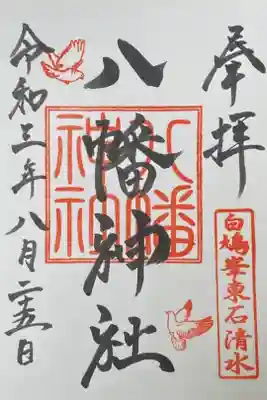 奉拝
白鳩峯東石清水
八幡神社
八幡神社
令和三年八月二十五日